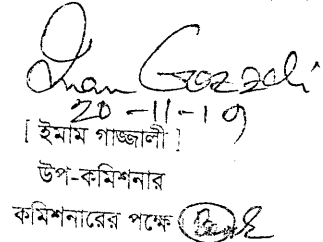 Iman Gazzali
20-11-19
[ ইমাম গাজ্জালী ]
উপ-কমিশনার
কমিশনারের পক্ষে